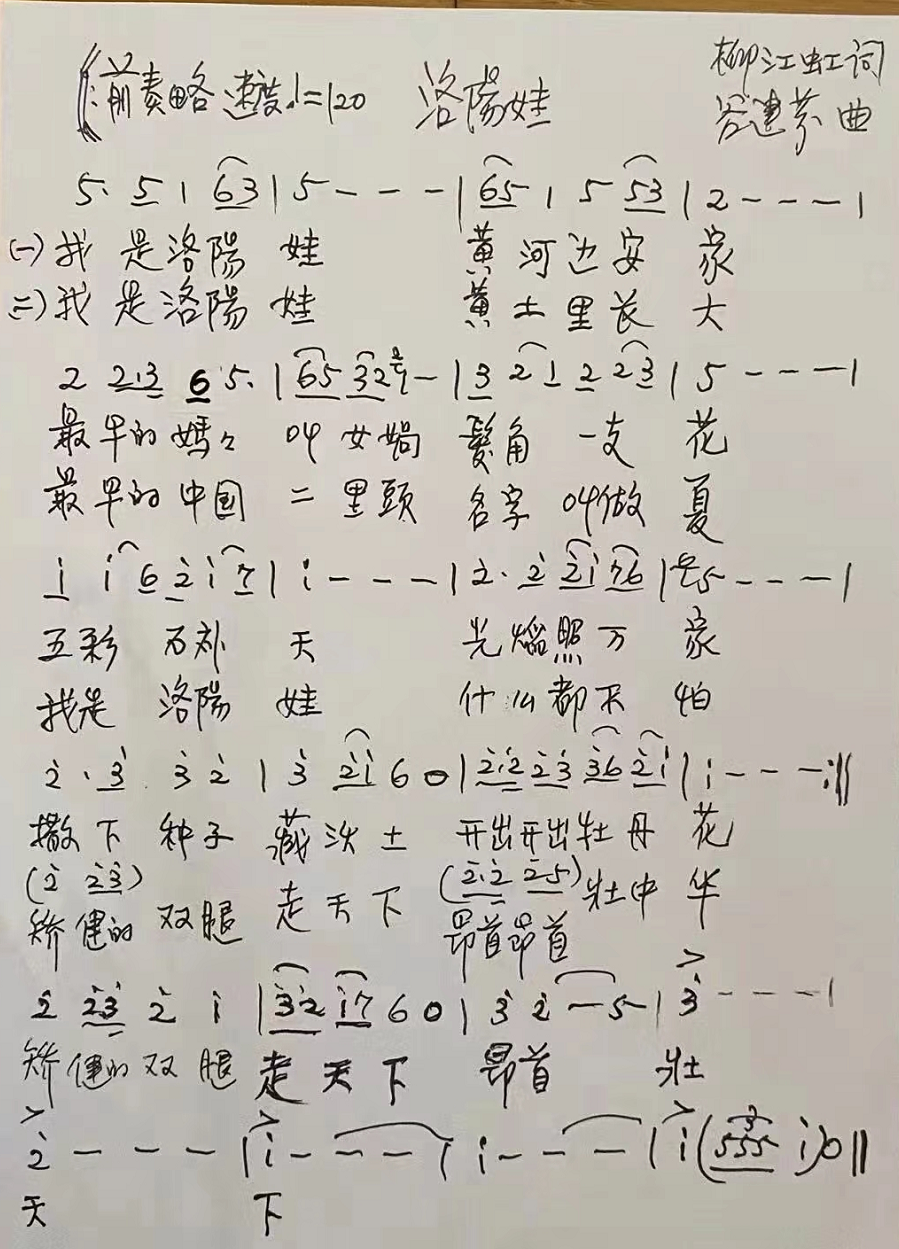 (前奏略 速度♩=120 洛陽娃 柳江虹词
谷建芬 曲
5. 5 1 63 | 5 - - - | 65 1 5 53 | 2 - - - - |
(一)我 是洛陽 娃 黄 河边安 家
(二)我 是洛陽 娃 黄 土里长 大
2 2·3 6 5. | 65 32 1 - | 3 2 1 2 23 | 5 - - - - |
最早的媽々 叫女媧 鬓角 一支 花
最早的中国 二里頭 名字 叫做 夏
i i 6 2 i 7 | i - - - - | 2. 2 2i 76 | 5 - - - - |
五彩 石补 天 光焰照万 家
我是 洛陽 娃 什么都不 怕
2 · 3 3 2 | 3 2i 6 0 | 2·2 23 36 2i | i - - - :||
撒下 种子 藏沃土 开出开出牡丹 花
(2 23) (2·2 25)
矫健的 双腿 走天下 昂首昂首 壮中 华
2 23 2 i | 32 i7 6 0 | 3 2 - 5 - | 3 - - - - |
矫健的双腿 走天下 昂首 壮
2 - - - - | i - - - | i - - - | i (555 i) 0 ||
天 下